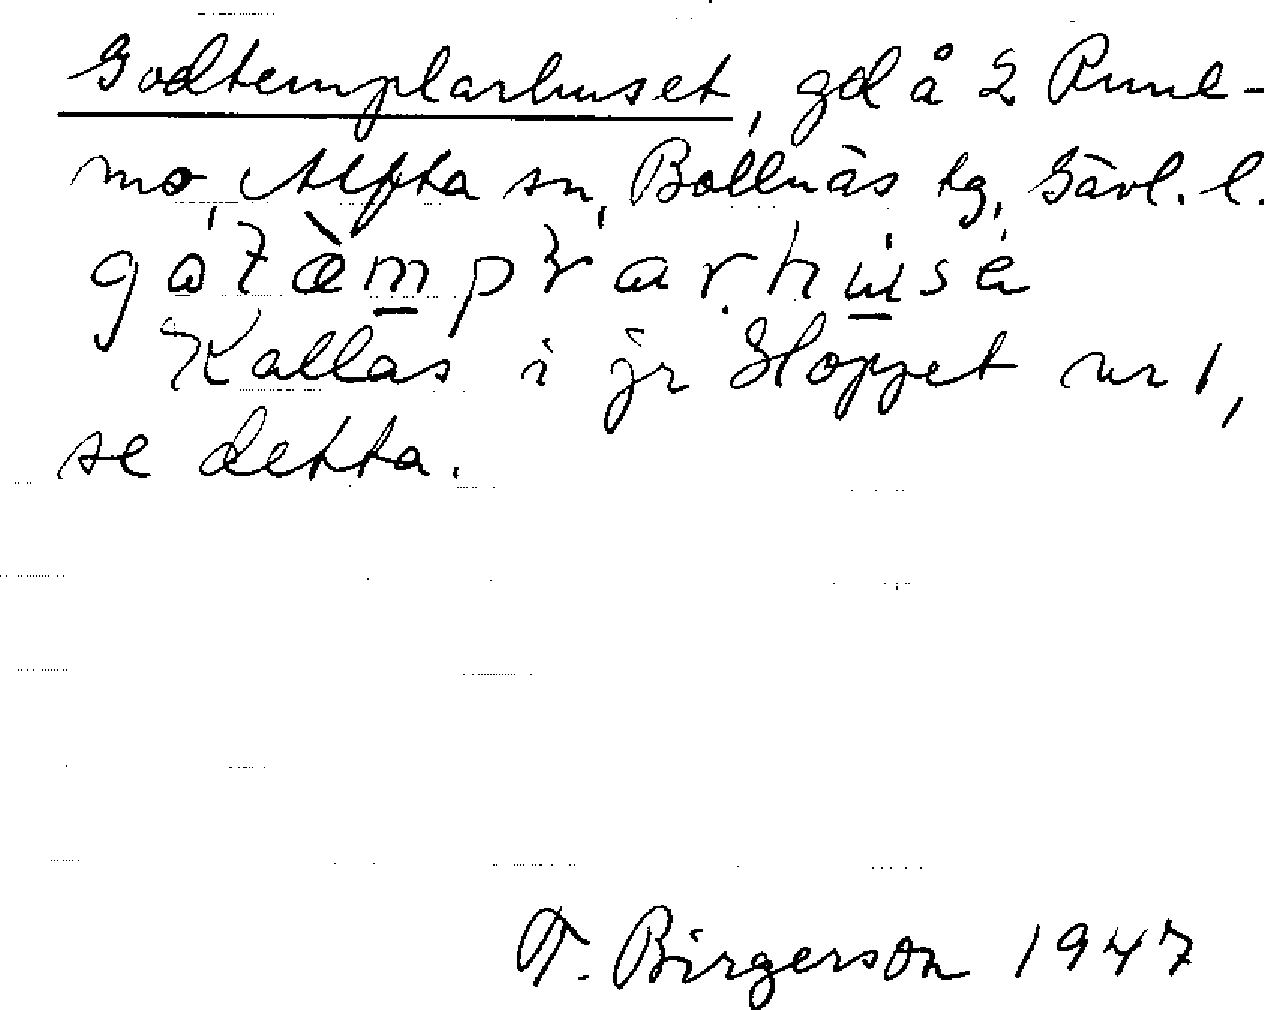 Godtemplarhuset, gd å 2 Rune-
mo, Alfta sn, Bollnäs tg, Gävl. l.
Kallas i jr Hoppet nr 1,
se detta.
T. Birgerson 1947